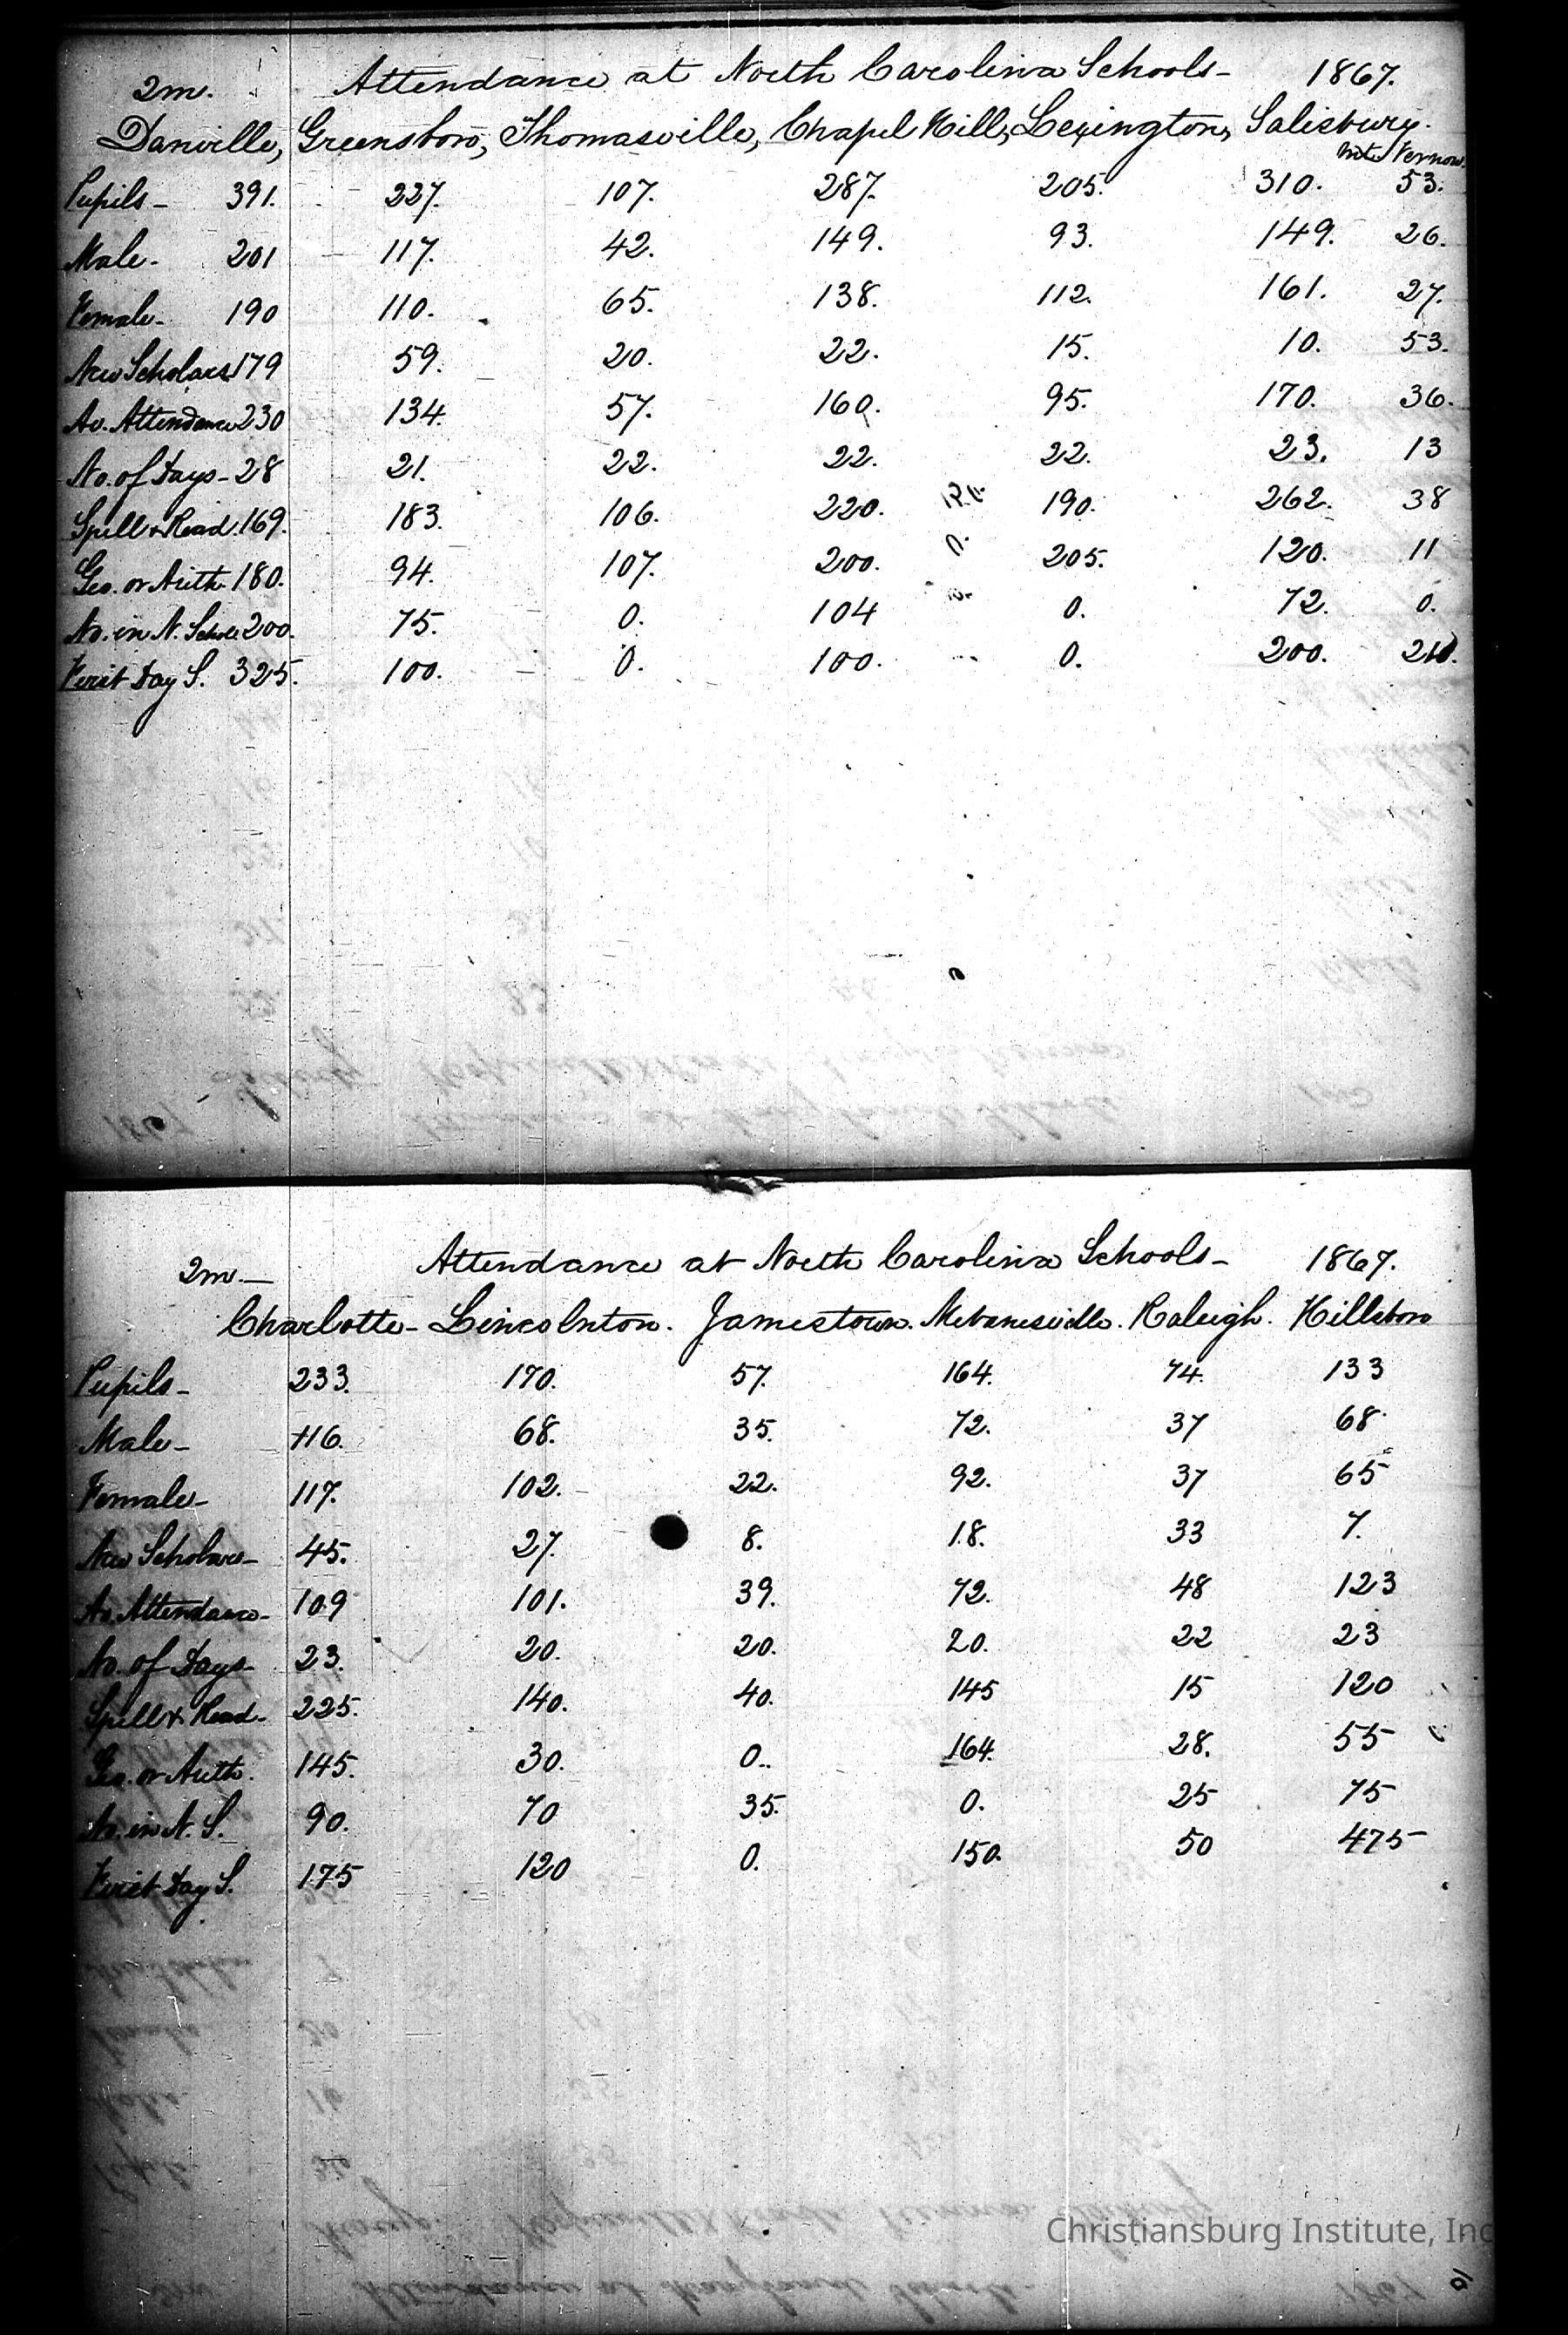 2m. Attendance at North Carolina Schools- 1867.
Danville, Greensboro, Thomasville, Chapel Hill, Lexington, Salisbury.
Mt. Vernon.
Pupils- 391. 227. 107. 287. 205. 310. 53.
Male. 201 117. 42. 149. 93. 149. 26.
Female- 190 110. 65. 138. 112. 161. 27.
New Scholars 179 59. 20. 22. 15. 10. 53.
Av. Attendance 230 134. 57. 160. 95. 170. 36.
No. of Days- 28 21. 22. 22. 22. 23. 13
Spell & Read. 169. 183. 106. 220. 190. 262. 38
Geo. or Arith. 180. 94. 107. 200. 0. 205. 120. 11
No. in N. School 200. 75. 0. 104 0. 72. 0.
First Day S. 325. 100. 0. 100. 0. 200.
2m.- Attendance at North Carolina Schools- 1867.
Charlotte- Lincolnton. Jamestown. Mebanesville. Raleigh. Hillsboro
Pupils- 233. 170. 57. 164. 74. 133
Male- 116. 68. 35. 72. 37 68.
Female- 117. 102. 22. 92. 37 65
New Scholars- 45. 27. 8. 18. 33 7.
Av. Attendance- 109 101. 39. 72. 48 123
No. of Days- 23. 20. 20. 20. 22 23
Spell & Read- 225. 140. 40. 145 15 120
Geo. or Arith. 145. 30. 0.. 164. 28. 55
No. in N. S. 90. 70 35. 0. 25 75
First Day S. 175 120 0. 150. 50 475-
Christiansburg Institute, Inc